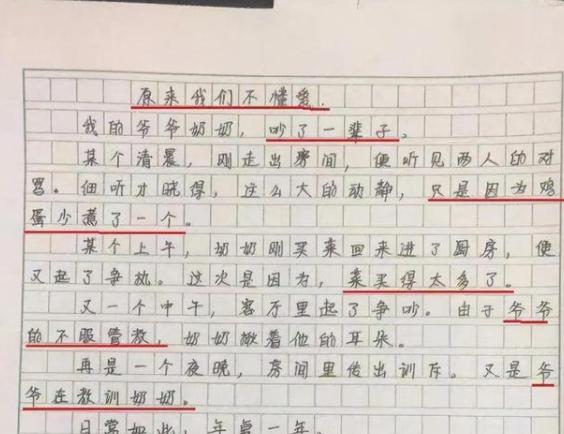 原来我们不懂爱.
我的爷爷奶奶，吵了一辈子。
某个清晨，刚走出房间，便听见两人的对
骂。细听才晓得，这么大的动静，只是因为鸡
蛋少煮了一个。
某个上午，奶奶刚买菜回来进了厨房，便
又起了争执。这次是因为，菜买得太多了。
又一个中午，客厅里起了争吵。由于爷爷
的不服管教，奶奶揪着他的耳朵。
再是一个夜晚，房间里传出训斥。又是爷
爷在教训奶奶。
日常如此，年复一年。